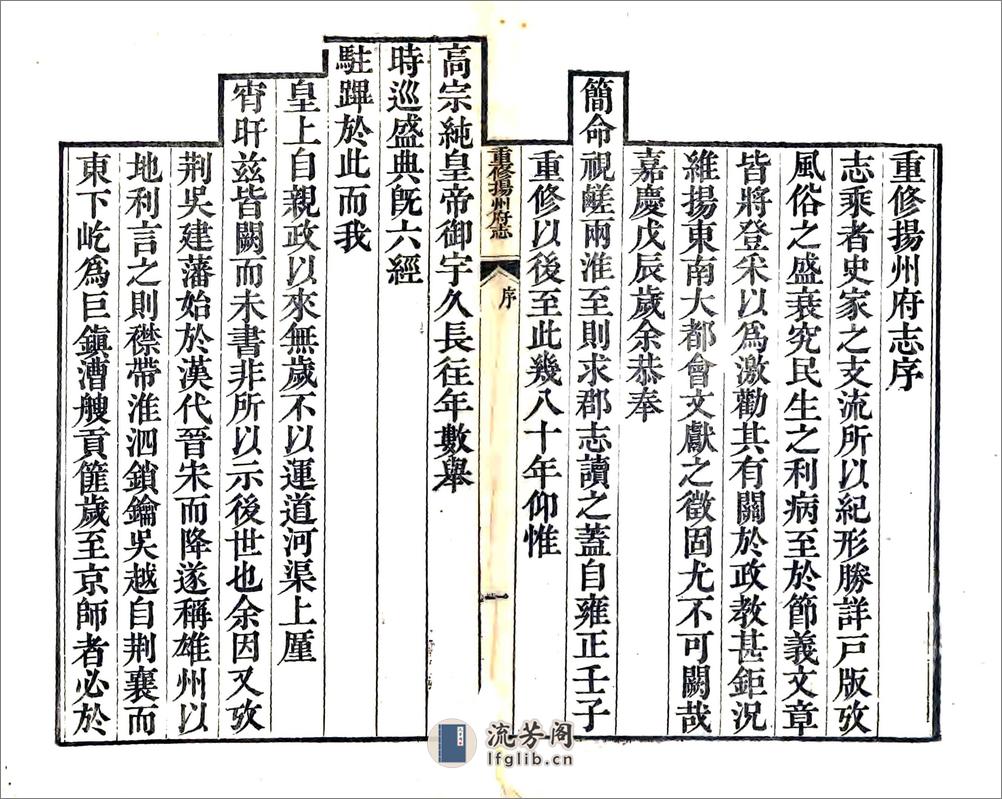 重修揚州府志序
志乘者史家之支流所以紀形勝詳戸版攷
風俗之盛衰究民生之利病至於節義文章
皆將登采以爲激勸其有關於政教甚鉅況
維揚東南大都會文獻之徵固尤不可闕哉
嘉慶戊辰歲余恭奉
簡命視鹺兩淮至則求郡志讀之蓋自雍正壬子
重修以後至此幾八十年仰惟
重修揚州府志
序
一
高宗純皇帝御宇久長往年數舉
時巡盛典旣六經
駐蹕於此而我
皇上自親政以來無歲不以運道河渠上厪
宵旰兹皆闕而未書非所以示後世也余因又攷
荆吳建藩始於漢代晉宋而降遂稱雄州以
地利言之則襟帶淮泗鎖鑰吳越自荆襄而
東下屹爲巨鎭漕艘貢篚歲至京師者必於
流芳阁
lfglib.cn